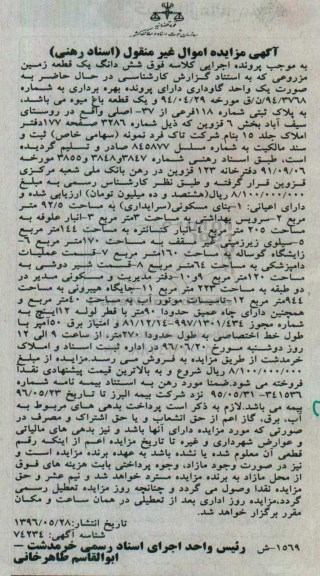 آگهی مزایده اموال غیر منقول (اسناد رهنی)
به موجب پرونده اجرایی کلاسه فوق شش دانگ یک قطعه زمین
مزروعی که به استناد گزارش کارشناسی در حال حاضر به
صورت یک واحد گاوداری دارای پروانه بهره برداری به شماره
۹۴۰۳۷۶۸/ن/ق مورخه ۹۴/۰۴/۲۹ و یک قطعه باغ میوه می باشد،
به پلاک ثبتی شماره ۱۱۸ فرعی از ۳۷- اصلی واقع در روستای
سیف آباد بخش ۶ قزوین که ذیل شماره ۳۲۸۶ صفحه ۱۷۷ دفتر
املاک جلد ۱۵ بنام شرکت تاک فرد نمونه (سهامی خاص) ثبت و
سند مالکیت به شماره مسلسل ۸۴۵۸۷۷ صادر و تسلیم گردیده
است، طبق اسناد رهنی شماره ۳۸۴۷ و ۳۸۴۸ و ۳۸۵۵ مورخه
۹۱/۰۹/۰۶ دفترخانه ۱۲۳ قزوین در رهن بانک ملی شعبه مرکزی
قزوین قرار گرفته و طبق نظر کارشناس رسمی به مبلغ
۸/۱۰۰/۰۰۰/۰۰۰ ریال(هشتصد و ده میلیون تومان) ارزیابی شده و
دارای اعیانی: ۱-بنای مسکونی(سرایداری) به مساحت ۹۲/۵ متر
مربع ۲-سرویس بهداشتی به مساحت ۳ متر مربع ۳-انبار علوفه به
مساحت ۲۰۵ متر مربع ۴-انبار کنسانتره به مساحت ۱۴۴ متر مربع
۵-سیلوی زیرزمینی سقف به مساحت ۱۷۰ متر مربع ۶-
زایشگاه گوساله به مساحت ۱۶۰ متر مربع ۷-قسمت عملیات
دامپزشکی به مساحت ۶۴ متر مربع ۸-قسمت شیر دوشی به
مساحت ۱۲۰ متر مربع ۹و۱۰-دفتر مدیریت و مسکونی مدیر در
دو طبقه به مساحت ۲۲۳ متر مربع ۱۱-جایگاه هیبرونی به مساحت
۹۴۴ متر مربع ۱۲-تاسیسات موتور آب به مساحت ۴۰ متر مربع و
همچنین دارای چاه عمیق حدودا ۹۰ متر با قطر لوله ۱۲ اینچ به
شماره مجوز ۹۹۷/۱۳۰۱/۴۳۴-۸۱/۱۲/۱۴ و امتیاز برق ۵۰ آمپر با
طول خط اختصاصی به طول حدودا ۲۷۰ متر، از ساعت ۹ الی ۱۲
روز دوشنبه مورخ ۹۶/۰۶/۲۰ در اداره ثبت اسناد و املاک
خرمدشت از طریق مزایده به فروش می رسد. مزایده از مبلغ
۸/۱۰۰/۰۰۰/۰۰۰ ریال شروع و به بالاترین قیمت پیشنهادی نقدا
فروخته می شود. ضمنا مورد رهن به استناد بیمه نامه شماره
۳۴۱۵۳۶- ۹۵/۰۵/۳۱ نزد شرکت بیمه البرز تا تاریخ ۹۶/۰۵/۲۳
بیمه می باشد. لازم به ذکر است پرداخت بدهی های مربوط به
آب، برق، گاز اعم از حق انشعاب و یا حق اشتراک و مصرف در
صورتی که مورد مزایده دارای آنها باشد و نیز بدهی های مالیاتی
و عوارض شهرداری و غیره تا تاریخ مزایده اعم از اینکه رقم
قطعی آن معلوم شده یا نشده باشد به عهده برنده مزایده است و
نیز در صورت وجود مازاد، وجوه پرداختی بابت هزینه های فوق
از محل مازاد به برنده مزایده مسترد خواهد شد و نیم عشر و حق
مزایده نقدا وصول می گردد و چنانچه روز مزایده تعطیل رسمی
گردد، مزایده روز اداری بعد از تعطیلی در همان ساعت و مکان
مقرر برگزار خواهد شد.
تاریخ انتشار: ۱۳۹۶/۰۵/۲۸
شناسه آگهی: ۷۴۲۳۴
۱۵۶۹-ش رئیس واحد اجرای اسناد رسمی خرمدشت –
ابوالقاسم طاهرخانی